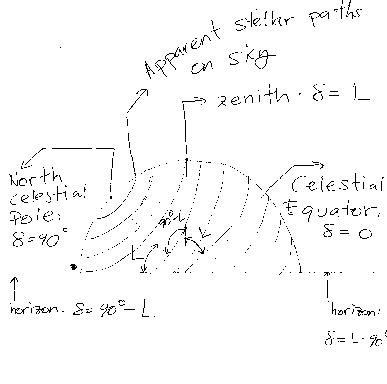 Apparent stellar paths
on sky
zenith. δ = L
North
celestial
Pole:
δ=90°
Celestial
Equator.
δ = 0
90°-L
L
L
horizon. δ= 90° - L
horizon:
δ=L-90°